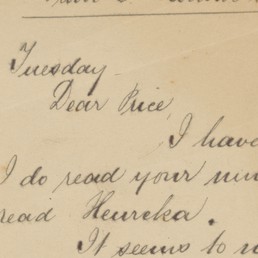 Tuesday
Dear Price,
I have
I do read your
read Heureka.
It seems to